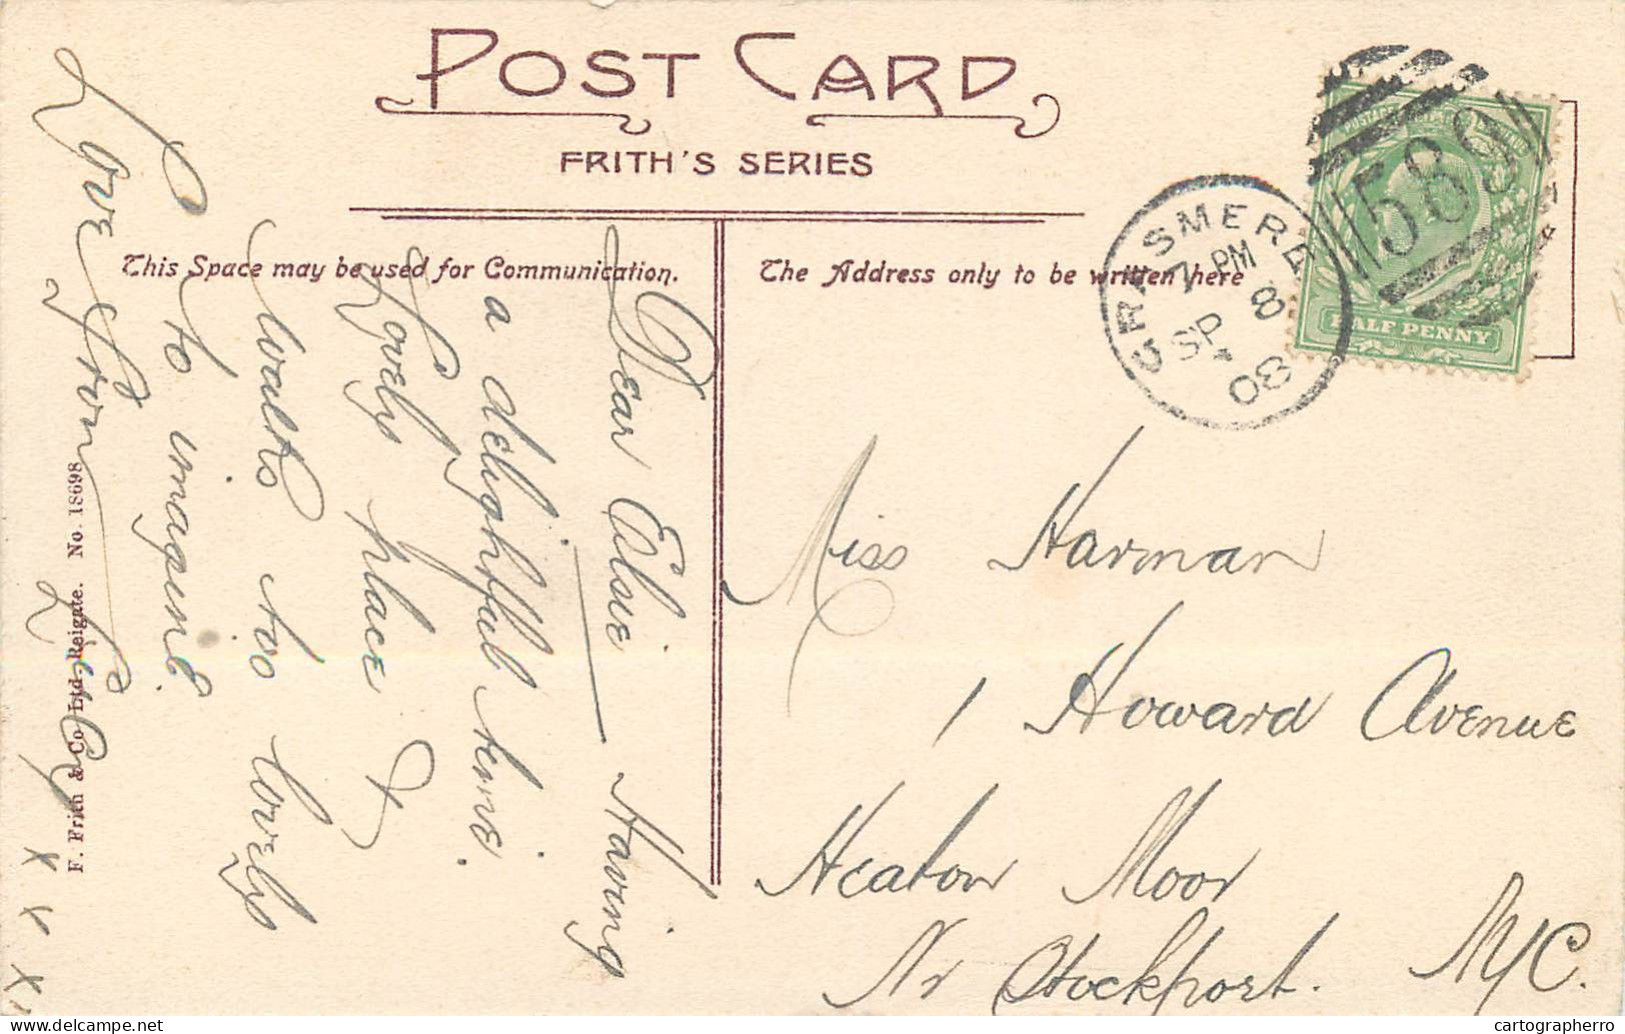 POST CARD
FRITH'S SERIES
This Space may be used for Communication.
The Address only to be written here
GRASMERE
7 PM
SP 8
08
589
POSTAGE
HALF PENNY
Dear Elsie Having
a delightful time.
Lovely place &
walks too lovely
to imagine.
Love from
Lucy
x x x
Miss Harman
1 Howard Avenue
Heaton Moor
Nr Stockport.
F. Frith & Co. Ltd. Reigate. No. 18698
delcampe.net
cartographerro